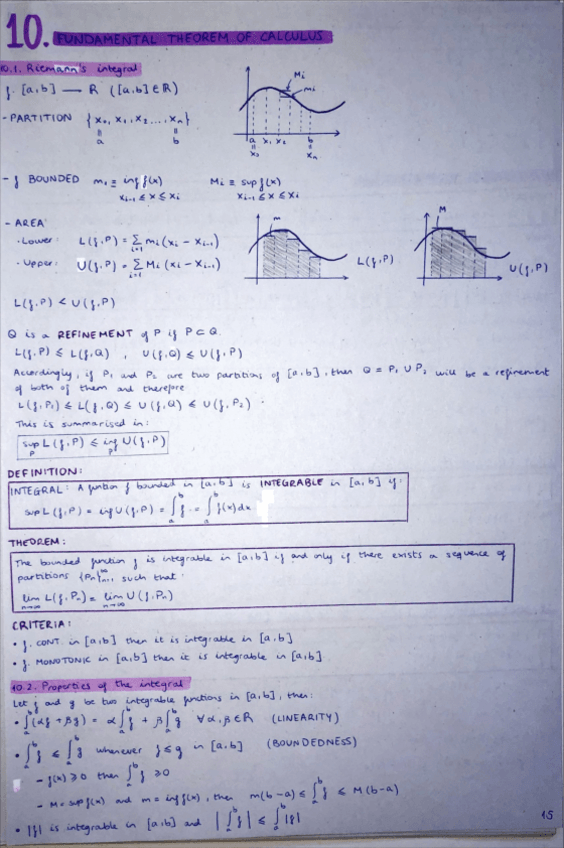 10. FUNDAMENTAL THEOREM OF CALCULUS
10.1. Riemann's integral
f: [a,b] → R ([a,b] ∈ R)
- PARTITION {x₀, x₁, x₂ ..., xₙ}
= =
a b
Mi
mi
a x₁ x₂ b
= =
x₀ xₙ
- f BOUNDED mi ≡ inf f(x) Mi ≡ sup f(x)
xi-1 ≤ x ≤ xi xi-1 ≤ x ≤ xi
- AREA
· Lower: L(f,P) = Σ mi (xi - xi-1)
i=1
· Upper: U(f,P) = Σ Mi (xi - xi-1)
i=1
m
L(f,P)
M
U(f,P)
L(f,P) < U(f,P)
Q is a REFINEMENT of P if P ⊂ Q.
L(f,P) ≤ L(f,Q) , U(f,Q) ≤ U(f,P)
Accordingly, if P₁ and P₂ are two partitions of [a,b], then Q = P₁ ∪ P₂ will be a refinement
of both of them and therefore
L(f,P₁) ≤ L(f,Q) ≤ U(f,Q) ≤ U(f,P₂)
This is summarised in:
sup L(f,P) ≤ inf U(f,P)
P P
DEFINITION:
INTEGRAL: A funtion f bounded in [a,b] is INTEGRABLE in [a,b] if:
sup L(f,P) = inf U(f,P) = ∫ₐᵇ f = ∫ₐᵇ f(x)dx
THEOREM:
The bounded function f is integrable in [a,b] if and only if there exists a sequence of
partitions {Pn}∞n=1 such that:
lim L(f,Pn) = lim U(f,Pn)
n→∞ n→∞
CRITERIA:
• f. CONT. in [a,b] then it is integrable in [a,b]
• f. MONOTONIC in [a,b] then it is integrable in [a,b]
10.2. Properties of the integral
Let f and g be two integrable functions in [a,b], then:
• ∫ₐᵇ(αf + βg) = α∫ₐᵇ f + β∫ₐᵇ g ∀α,β∈R (LINEARITY)
• ∫ₐᵇ f ≤ ∫ₐᵇ g whenever f ≤ g in [a,b] (BOUNDEDNESS)
- f(x) ≥ 0 then ∫ₐᵇ f ≥ 0
- M = sup f(x) and m = inf f(x), then m(b-a) ≤ ∫ₐᵇ f ≤ M(b-a)
• |f| is integrable in [a,b] and |∫ₐᵇ f| ≤ ∫ₐᵇ |f|
15